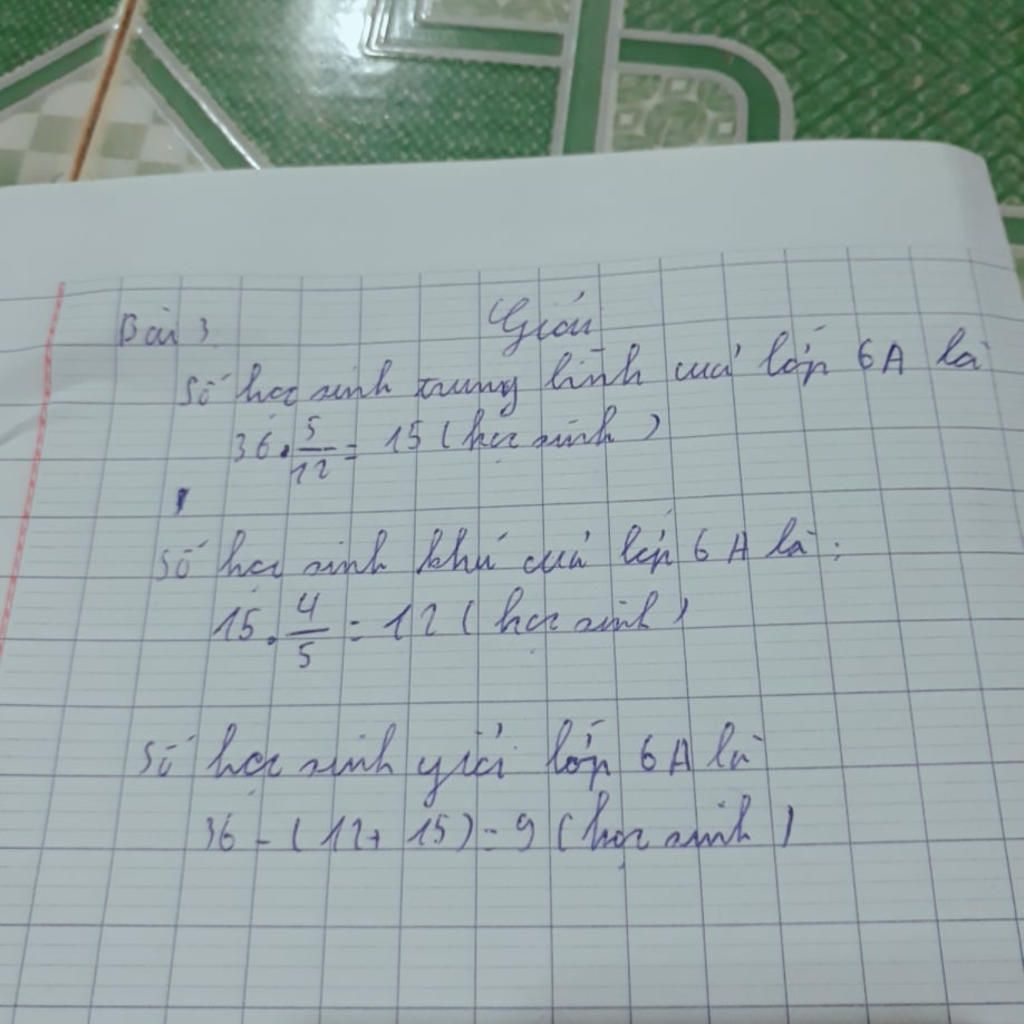 Bài 3 Giải
Số học sinh trung bình của lớp 6A là
36 . 5/12 = 15 (học sinh)
Số học sinh khá của lớp 6A là :
15 . 4/5 = 12 (học sinh)
Số học sinh giỏi lớp 6A là
36 - (12 + 15) = 9 (học sinh)